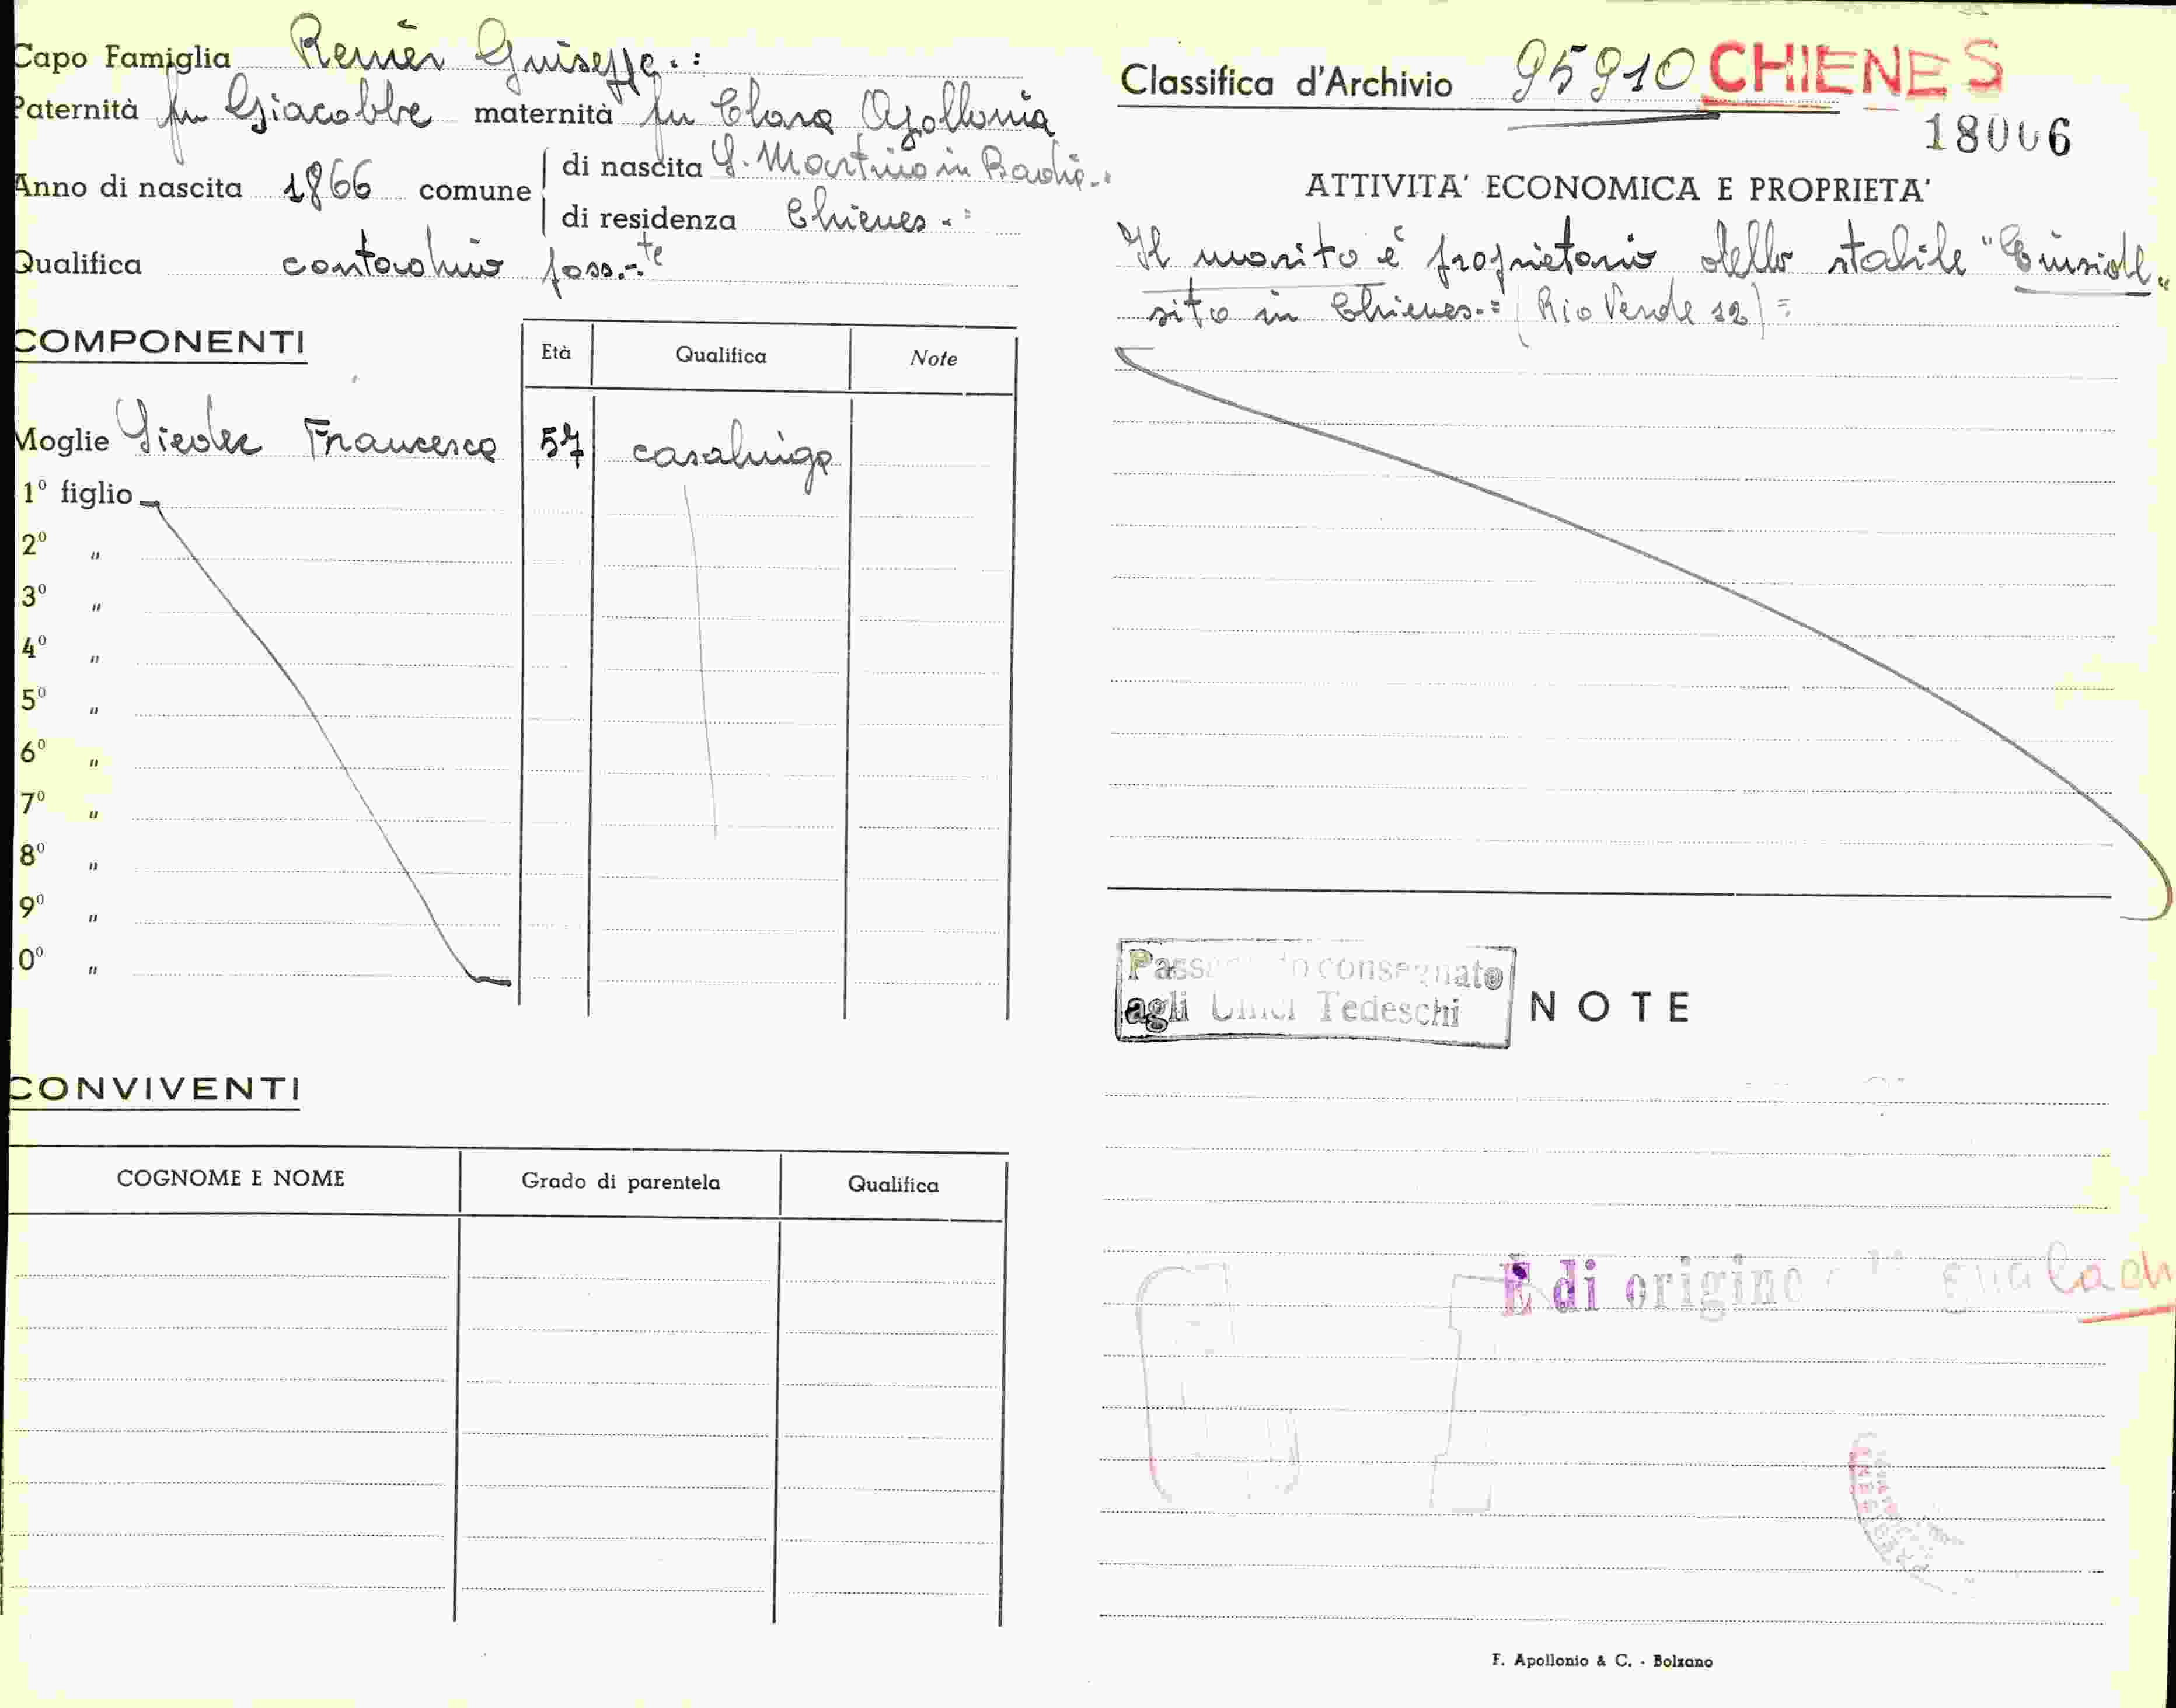 Capo Famiglia Renier Guiseppe.:
Paternità fu Giacobbe maternità fu Clara Apollonia
Anno di nascita 1866 comune
di nascita S. Martino in Badia.=
di residenza Chienes.=
Qualifica contadino poss.-te
COMPONENTI
Età Qualifica Note
Moglie Sieder Francesca 57 casalinga
1° figlio
2° "
3° "
4° "
5° "
6° "
7° "
8° "
9° "
0° "
CONVIVENTI
COGNOME E NOME Grado di parentela Qualifica
Classifica d'Archivio 95910 CHIENES
18006
ATTIVITA' ECONOMICA E PROPRIETA'
Il marito è proprietario dello stabile
sito in Chienes.= (Rio Verde 12)=
consegnato
agli Tedeschi
NOTE
È di origine
F. Apollonio & C. - Bolzano